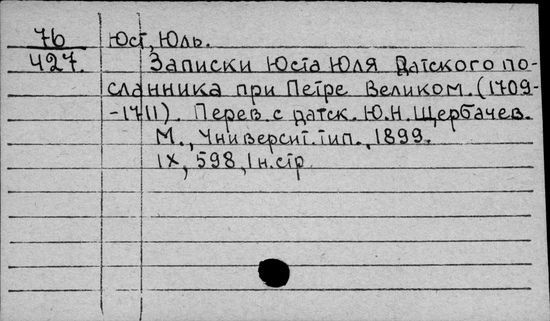 76 Юст, Юль.
427. Записки Юста Юля Датского по-
сланника при Петре Великом. (1709-
-1711). Перев. с датск. Ю.Н. Щербачев.
М., Университ. тип., 1899.
IX, 598, 1 н. стр.